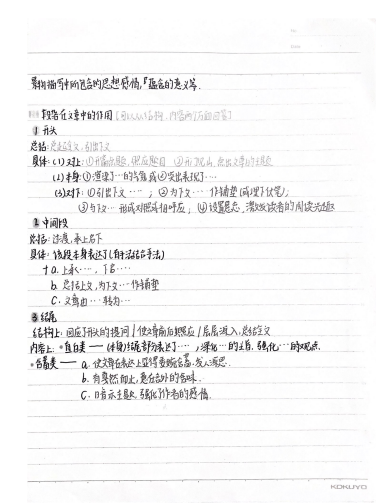 景物描写中所包含的思想感情,蕴含的意义等.
段落在文章中的作用 [可以从结构、内容两个方面回答]
① 开头
总结:总起全文,引出下文
具体:(1)对上:①开篇点题,照应题目 ②开门见山,突出文章的主题
(2)本身:①渲染了…的气氛或②突出表现了…
(3)对下:①引出下文…;②为下文…作铺垫(或埋下伏笔);
③与下文…形成对照或相呼应;④设置悬念,激发读者的阅读兴趣
② 中间段
总结:过渡,承上启下
具体:该段本身表达了(有手法结合手法)
+ a. 上承…,下启…
b. 总结上文,为下文…作铺垫
c. 文章由…转为…
③ 结尾
结构上:回应了开头的提问/使文章前后照应/层层深入,总结全文
内容上:*直白类——(本身)结尾部分表达了…,深化…的主旨,强化…的观点.
*含蓄类—— a. 使文章在表达上显得委婉含蓄,发人深思.
b. 有戛然而止,意在言外的含味.
c. 暗示主题,强化了作者的感情.
KOKUYO